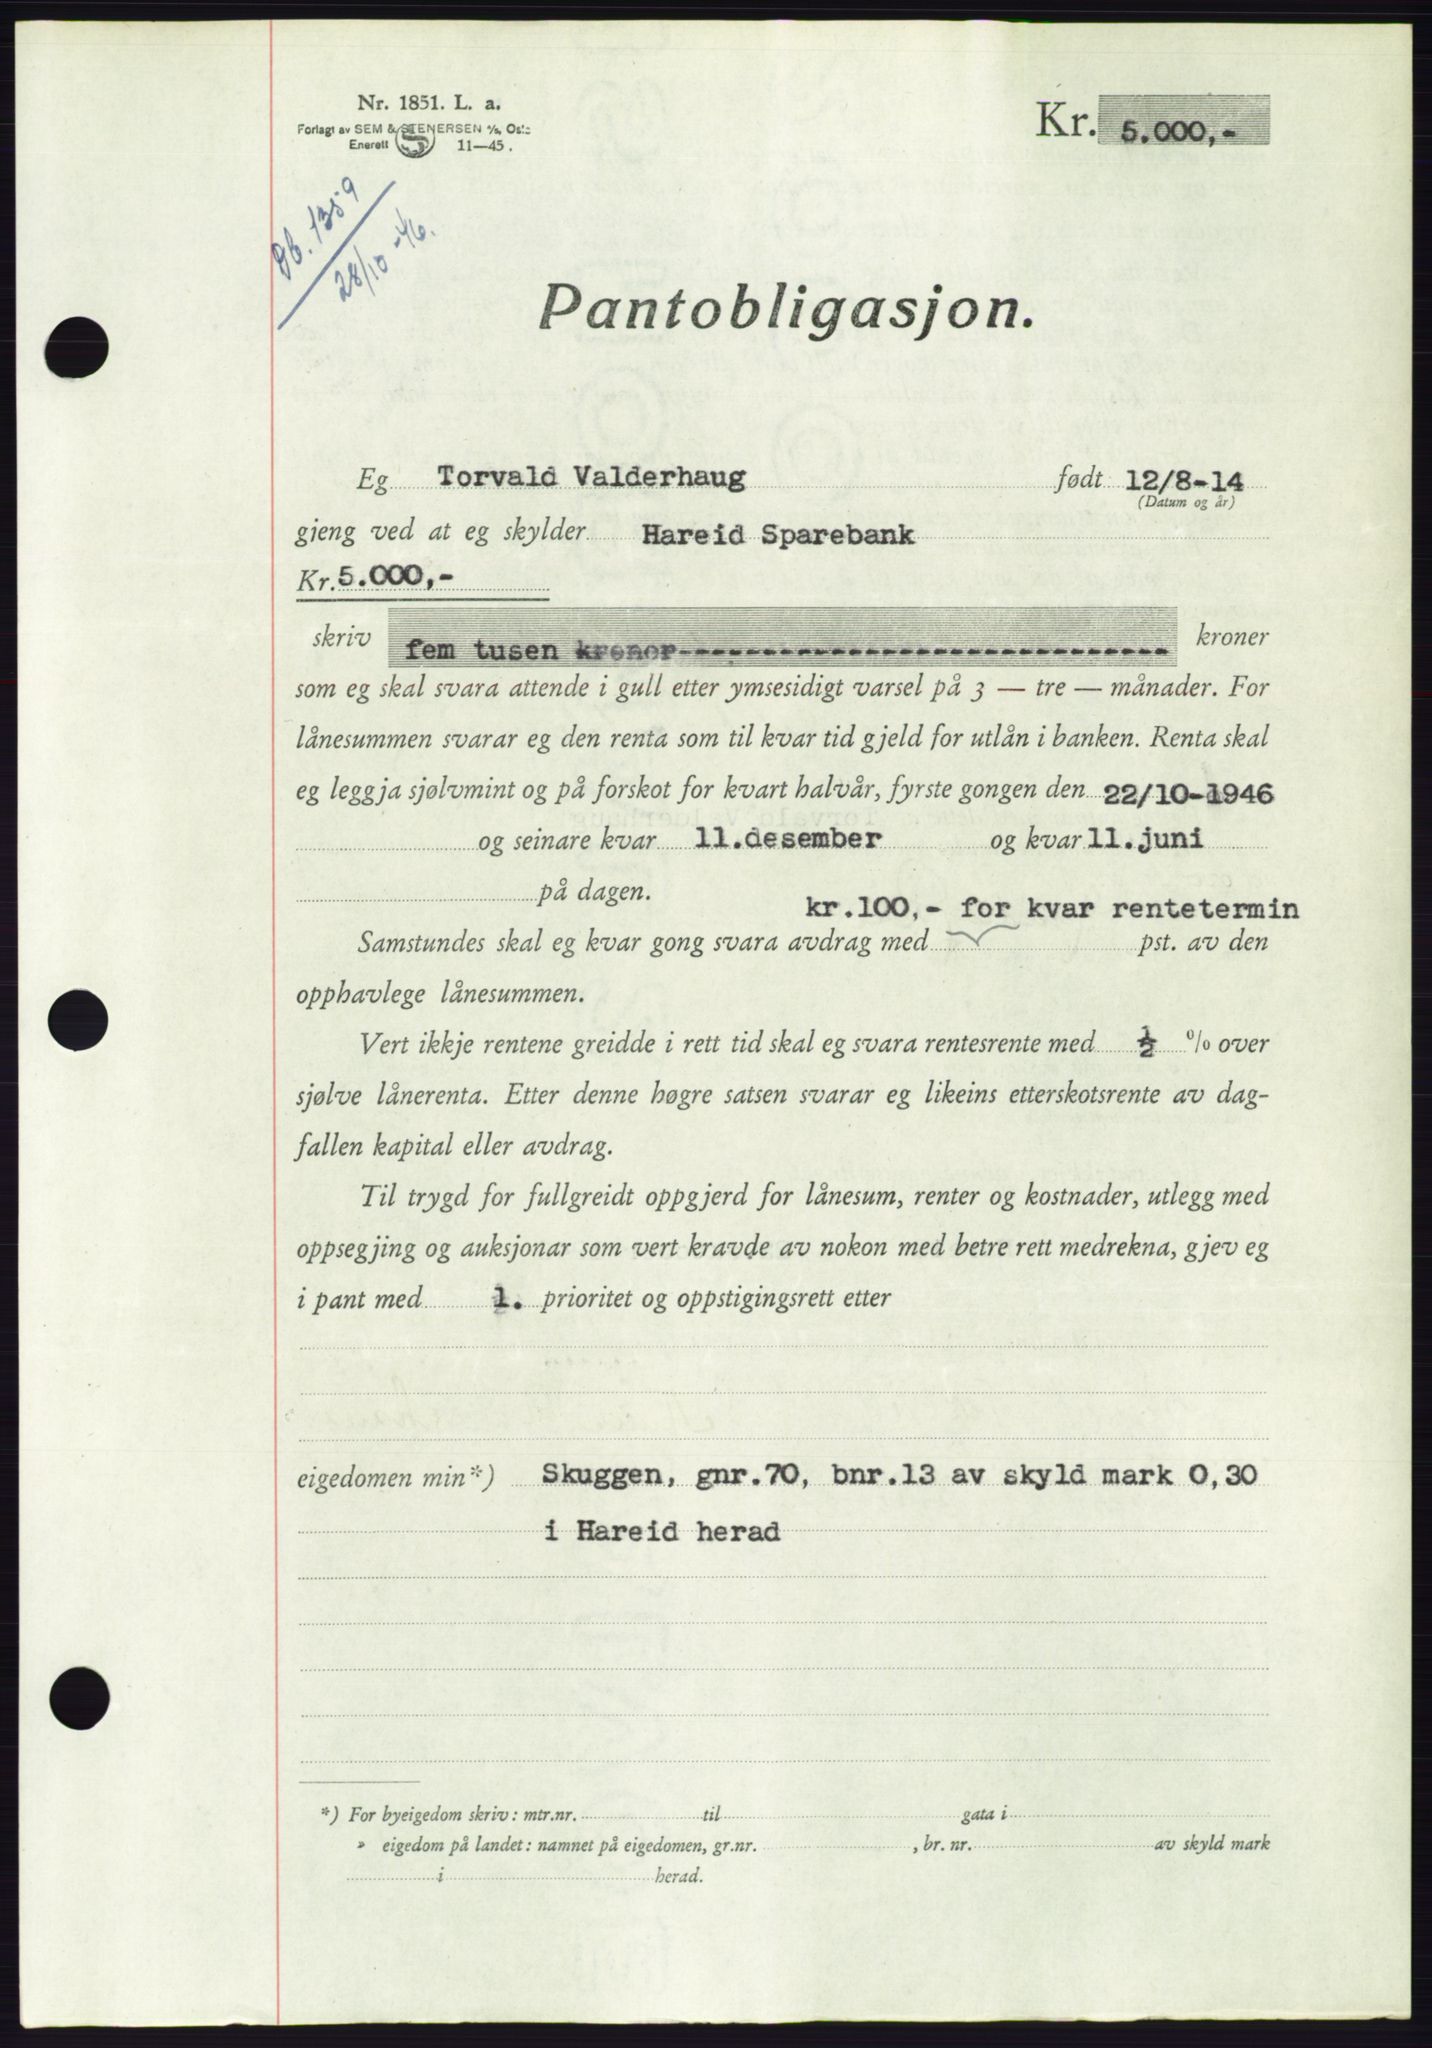 Nr. 1851. L. a.
Forlagt av SEM & STENERSEN A/S, Oslo
Enerett 11—45.
Kr. 5.000,-
Db. 1359
28/10-46.
Pantobligasjon.
Eg Torvald Valderhaug født 12/8-14
(Datum og år)
gjeng ved at eg skylder Hareid Sparebank
Kr. 5.000,-
skriv fem tusen kroner------------------------------ kroner
som eg skal svara attende i gull etter ymsesidigt varsel på 3 — tre — månader. For
lånesummen svarar eg den renta som til kvar tid gjeld for utlån i banken. Renta skal
eg leggja sjølvmint og på forskot for kvart halvår, fyrste gongen den 22/10-1946
og seinare kvar 11.desember og kvar 11.juni
på dagen.
kr.100,- for kvar rentetermin
Samstundes skal eg kvar gong svara avdrag med pst. av den
opphavlege lånesummen.
Vert ikkje rentene greidde i rett tid skal eg svara rentesrente med ½ % over
sjølve lånerenta. Etter denne høgre satsen svarar eg likeins etterskotsrente av dag-
fallen kapital eller avdrag.
Til trygd for fullgreidt oppgjerd for lånesum, renter og kostnader, utlegg med
oppsegjing og auksjonar som vert kravde av nokon med betre rett medrekna, gjev eg
i pant med 1. prioritet og oppstigingsrett etter
eigedomen min*) Skuggen, gnr.70, bnr.13 av skyld mark 0,30
i Hareid herad
*) For byeigedom skriv: mtr.nr. til gata i
» eigedom på landet: namnet på eigedomen, gr.nr. , br. nr. av skyld mark
i herad.